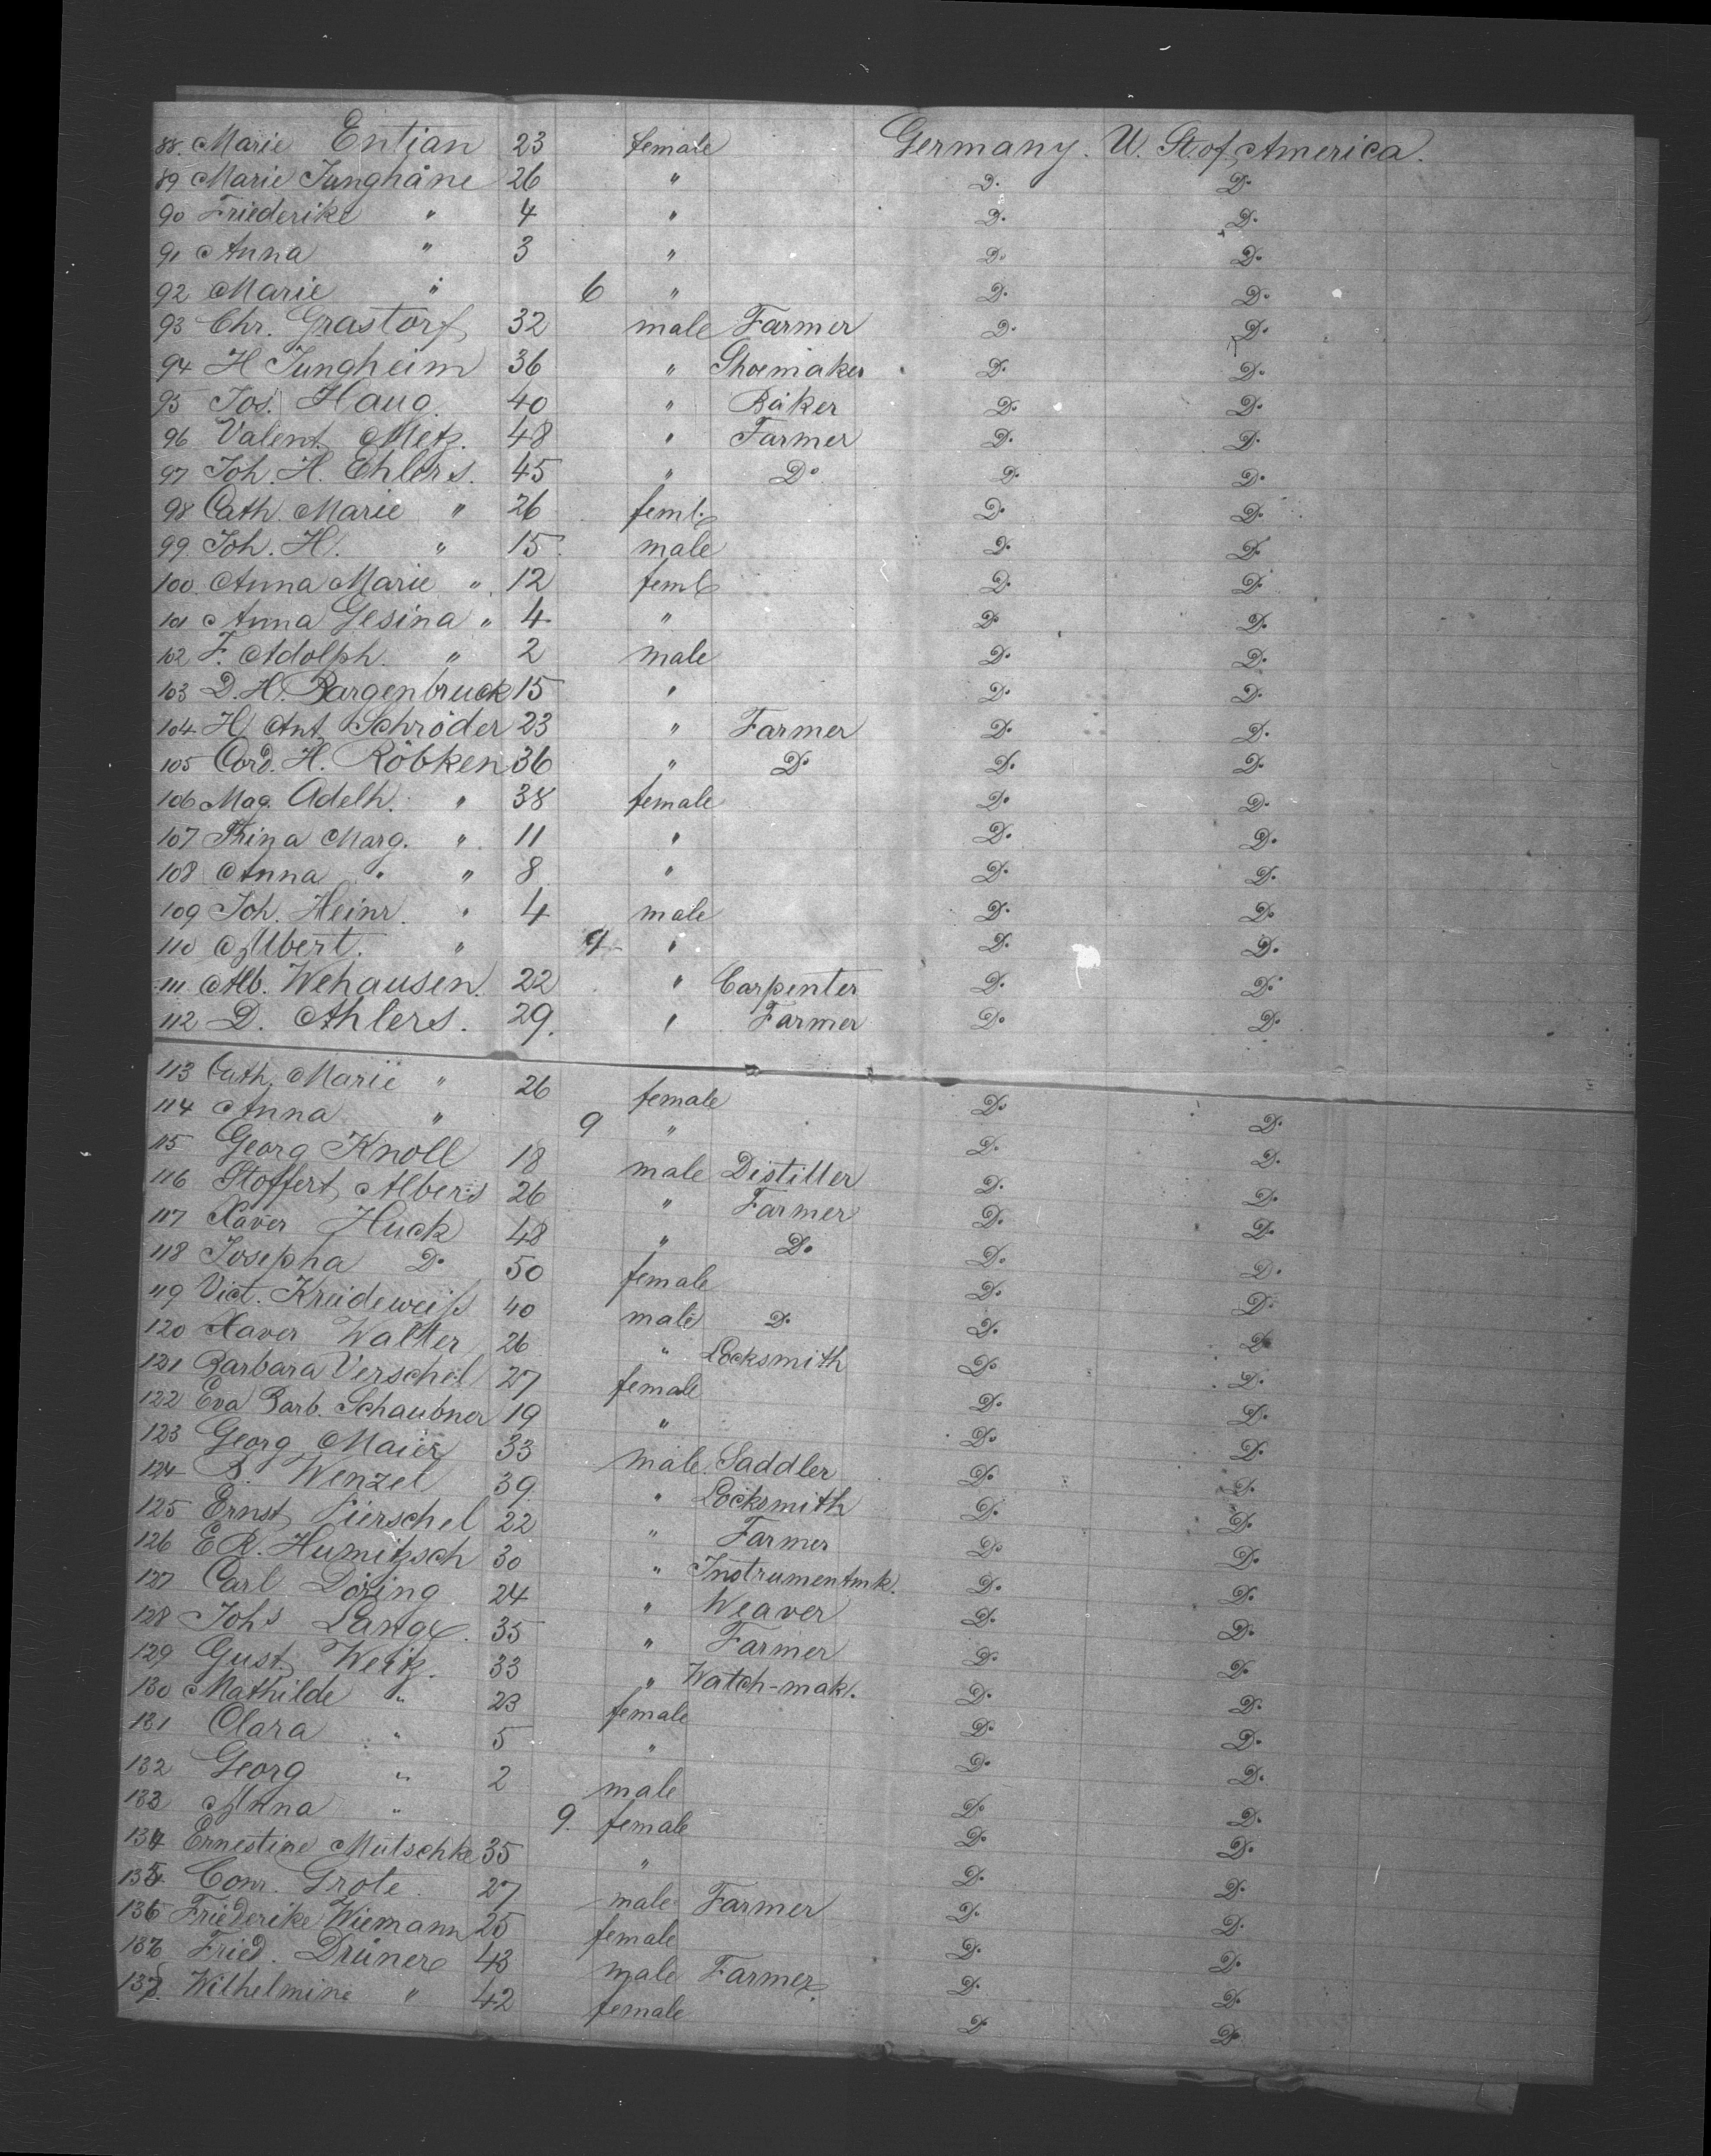 88. Marie Entian 23 female Germany. U. St. of America.
89 Marie Junghäne 26 " D. D.
90 Friederike " 4 " D. D.
91 Anna " 3 " D. D.
92 Marie " 6 " D. D.
93 Chr. Grastorf 32 male Farmer D. D.
94 H Jungheim 36 " Shoemaker D. D.
95 Jos. Haug. 40 " Baker D. D.
96 Valent. Metz. 48 " Farmer D. D.
97 Joh. H. Ehlers. 45 " Do D. D.
98 Cath. Marie " 26 feml. D. D.
99. Joh. H. " 15. male D. D.
100. Anna Marie " 12 feml D. D.
101 Anna Gesina " 4 " D. D.
102 F. Adolph. " 2 male D. D.
103 D. H. Bargenbruck 15 " D. D.
104 H. Ant. Schröder 23 " Farmer D. D.
105 Cord. H. Röbken 36 " D. D. D.
106 Mag. Adelh. " 38 female D. D.
107 Trina Marg. " 11 " D. D.
108 Anna " " 8 " D. D.
109 Joh. Heinr. " 4 male D. D.
110 Albert. " 9 " D. D.
111 Alb. Wehausen. 22 " Carpenter D. D.
112 D. Ahlers. 29. " Farmer D. D.
113 Cath. Marie " 26 female D. D.
114 Anna " 9 " D. D.
115 Georg Knoll 18 male Distiller D. D.
116 Stoffert Albers 26 " Farmer D. D.
117 Xaver Huck 48 " D. D. D.
118 Josepha D. 50 female D. D.
119 Vict. Kreideweiß 40 male D. D. D.
120 Xaver Walter 26 " Locksmith D. D.
121 Barbara Verschel 27 female D. D.
122 Eva Barb. Schaubner 19 " D. D.
123 Georg Maier 33 male Saddler D. D.
124 Wenzel 39. " Locksmith D. D.
125 Ernst Pierschel 22 " Farmer D. D.
126 E R. Humitzsch 30 " Instrumentmk. D. D.
127 Carl Döring 24 " Weaver D. D.
128 Johs Lange. 35 " Farmer D. D.
129 Gust. Weitz. 33 " Watch-mak. D. D.
130 Mathilde " 23 female D. D.
131 Clara " 5 " D. D.
132 Georg " 2 male D. D.
133 Anna " 9. female D. D.
134 Ernestine Mutschke 35 " D. D.
135 Conr. Grote. 27 male Farmer D. D.
136 Friederike Wiemann 25 female D. D.
137 Fried. Drüner 43 male Farmer. D. D.
138. Wilhelmine " 42 female D. D.